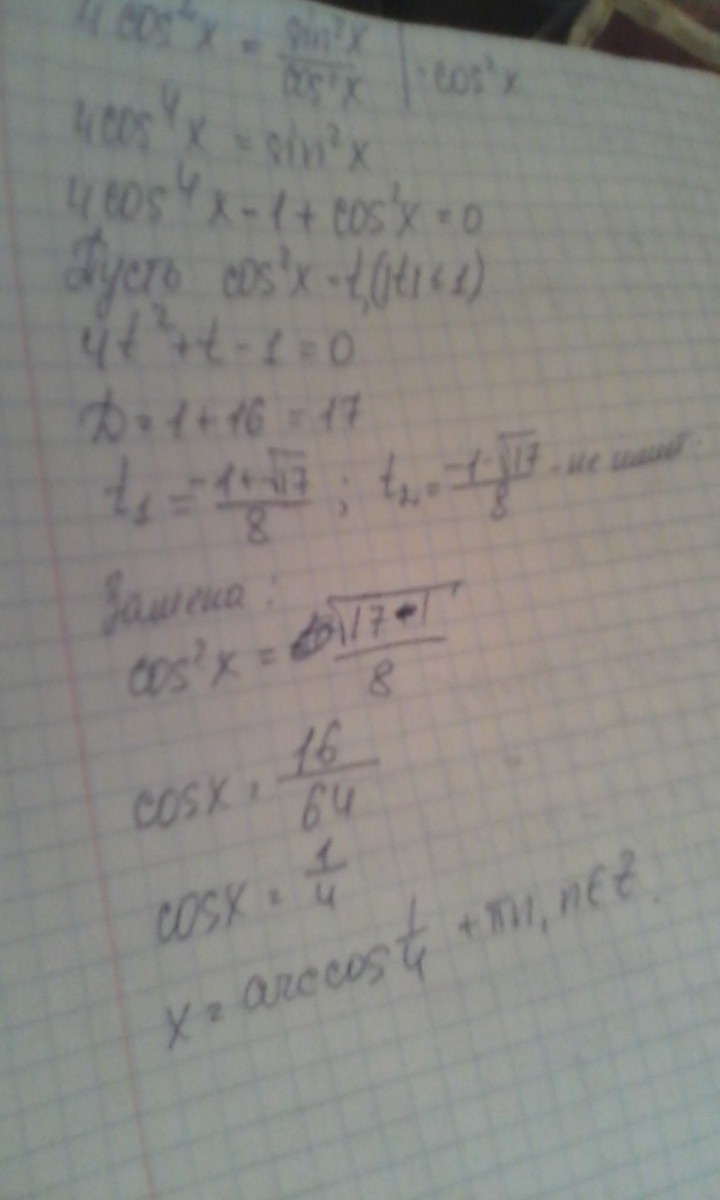 4cos²x = sin²x/cos²x | : cos²x
4cos⁴x = sin²x
4cos⁴x - 1 + cos²x = 0
Пусть cos²x - t, (|t| ≤ 1)
4t² + t - 1 = 0
D = 1 + 16 = 17
t₁ = (-1+√17)/8 ; t₂ = (-1-√17)/8 - не
Замена :
cos²x = √17-1/8
cosx = 16/64
cosx = 1/4
x = arccos 1/4 + πn, n∈Z.